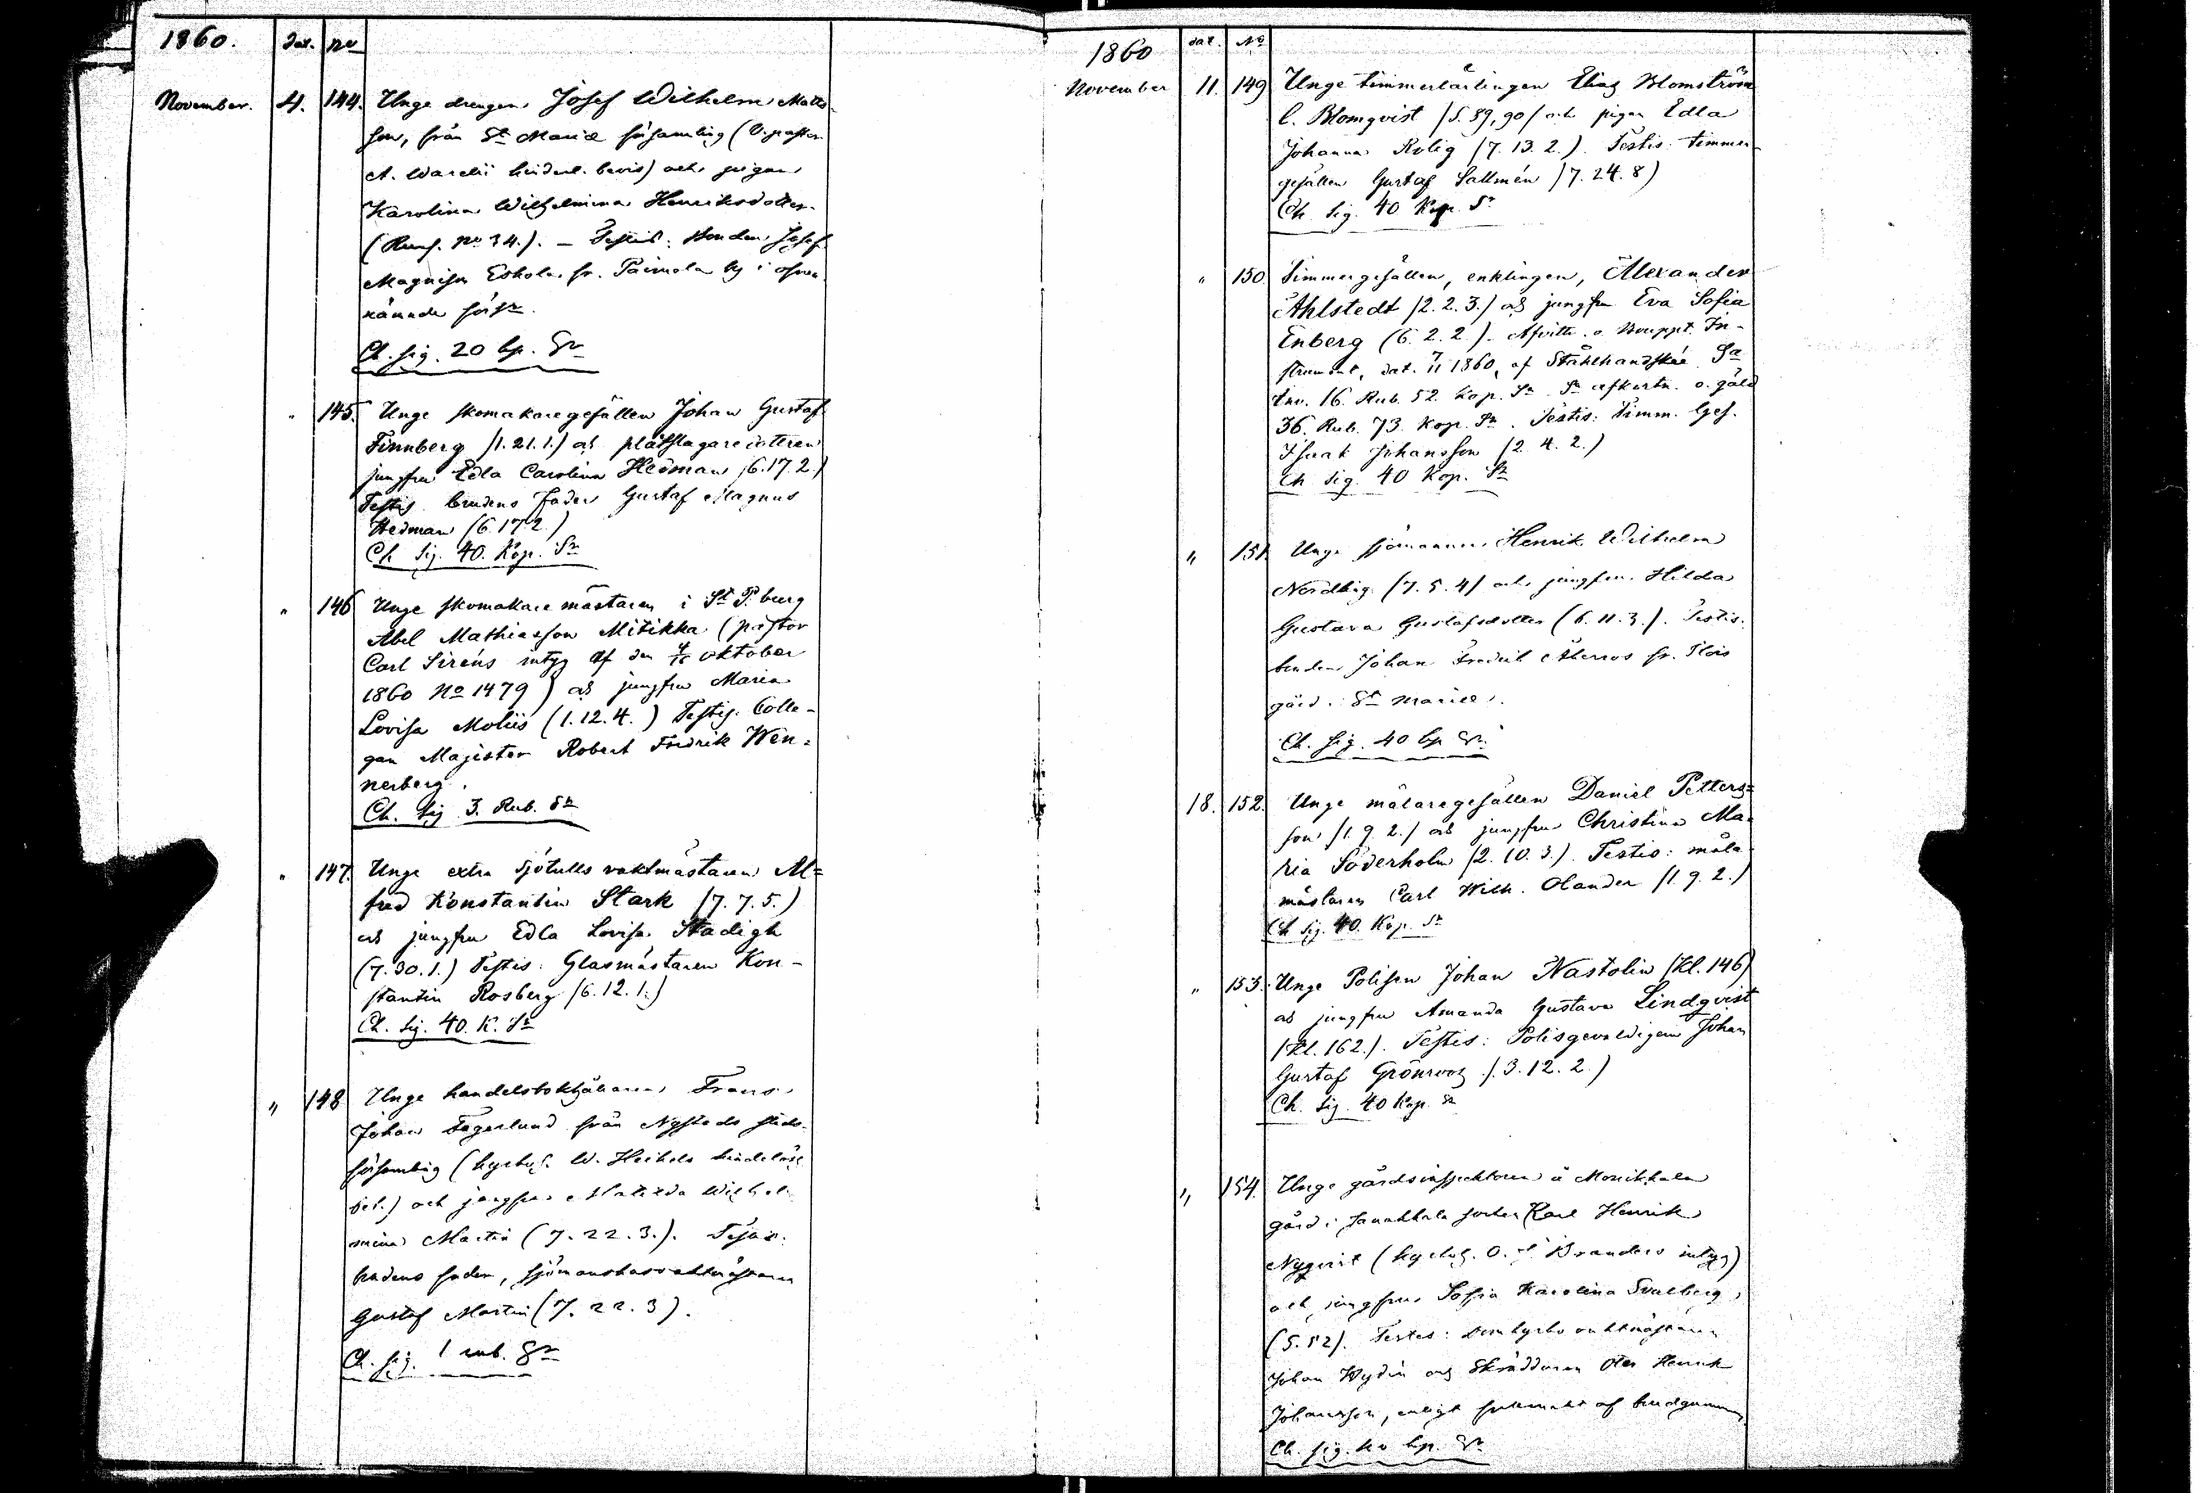 1860. dat. no
November. 4. 144. Unge drengen Josef Wilhelm Matts-
son, från St Mariæ församling (V. pastor
A. Warelii hinderl. bevis) och pigan
Karolina Wilhelmina Henriksdotter
(Kungs. No 34.). – Testis: bonden Josef
Magnsson Eskola fr. Paimala by i ofvan-
nämnde förs:n.
Ch. sig. 20 kp. Sr
" 145. Unge skomakaregesällen Johan Gustaf
Finnberg /1. 21. 1./ och plåtslagaredotteren
jungfru Edla Carolina Hedman /6. 17. 2./
Testis brudens fader Gustaf Magnus
Hedman (6. 17 2.)
Ch Sig. 40. Kop. Sr
" 146 Unge skomakare mästaren i St P:burg
Abel Mathiasson Mitikka (pastor
Carl Siréns intyg af den 4/16 oktober
1860 No 1479) och jungfru Maria
Lovisa Moliis (1. 12. 4.) Testis. Colle-
gan Magister Robert Fredrik Wen-
nerberg.
Ch. Sig 3. Rub. Sr
" 147. Unge extra Sjötulls vaktmästaren Al=
fred Konstantin Stark /7. 7. 5.)
och jungfru Edla Lovisa Stadigh
(7. 30. 1.) Testis: Glasmästaren Kon-
stantin Rosberg /6. 12. 1.)
Ch. Sig. 40. K. Sr
" 148 Unge handelsbokhållaren Frans
Johan Fagerlund från Nystads stads-
församling (kyrkoh. W. Heikels hinderlös.
bet.) och jungfru Matilda Wilhel-
mina Martin (7. 22. 3.). Testis:
brudens fader, sjömanshusvaktmästaren
Gustaf Martin (7. 22. 3).
Ch. sig. 1 rub. Sr
1860 dat. No
November 11. 149 Unge timmerlärlingen Elias Blomström
l. Blomqvist /S. 89, 90/ och pigan Edla
Johanna Rolig (7. 13. 2.). Testis: timmer-
gesällen Gustaf Sallmén /7. 24. 8)
Ch. Sig. 40 Kop. Sr
" 150 Timmergesällen, enklingen, Alexander
Ahlstedt /2. 2. 3./ och jungfru Eva Sofia
Enberg (6. 2. 2). Afvitt. o. Bouppt. In-
strument, dat. 7/11 1860, af Stålhandske. Sa
Inv. 16. Rub. 52 Kop. Sr Sa afkortn. o. gäld
36. Rub. 73. Kop. Sr. Testis: Timm. Ges.
Isaak Johansson (2. 4. 2.)
Ch Sig. 40 Kop. Sr
" 151. Unge sjömannen Henrik Wilhelm
Nordling (7. 5. 4/ och jungfru Hilda
Gustava Gustafsdotter (6. 11. 3.). Testis:
bonden Johan Fredrik fr.
gård. St Mariæ.
Ch. sig. 40 kp Sr.
18. 152. Unge målaregesällen Daniel Petters=
son /1. 9. 2./ och jungfru Christina Ma-
ria Söderholm /2. 10. 3.). Testis: måla
mästaren Carl Wilh. Olander /1. 9. 2./
Ch Sig. 40. Kop. Sr
" 153. Unge Polisen Johan Nastolin (Kl. 146)
och jungfru Amanda Gustava Lindqvist
(Kl. 162.). Testis: Polisgevaldigern Johan
Gustaf Grönroos /. 3. 12. 2.)
Ch. Sig. 40 Kop. Sr
" 154. Unge gårdsinspektoren å Monikkala
gård i Janakkala socken Karl Henrik
Nyqvist (kyrkoh. O. J. Branders intyg)
och jungfru Sofia Karolina Svalberg
(S. 52). Testes: domkyrko vaktmästaren
Johan Wydén och Skräddaren Otto Henrik
Johansson, enligt fullmakt af brudgummen
Ch. sig. 40 kp. Sr